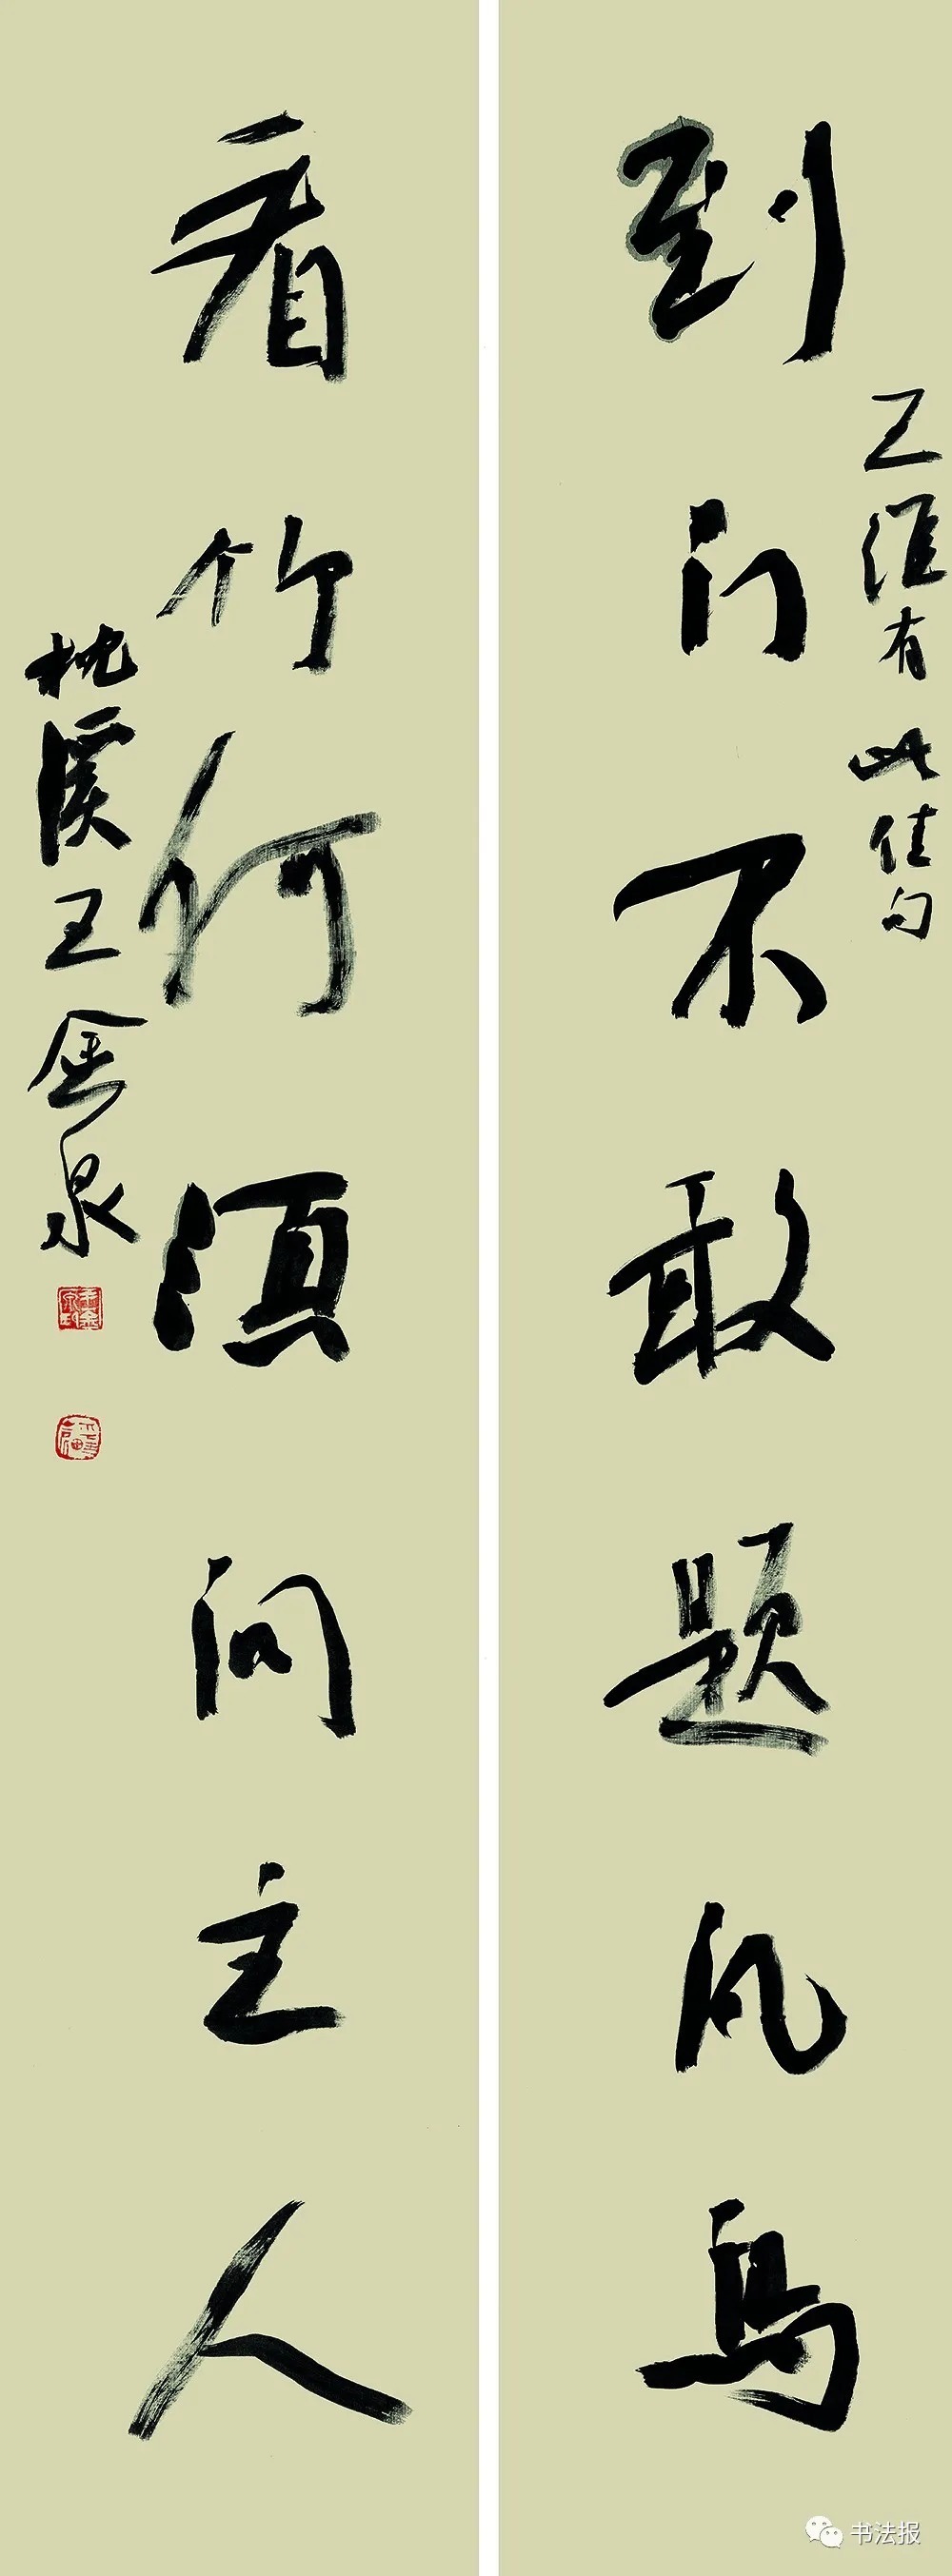 王维有此佳句
到门不敢题凡鸟
看竹何须问主人
枕溪王金泉
书法报